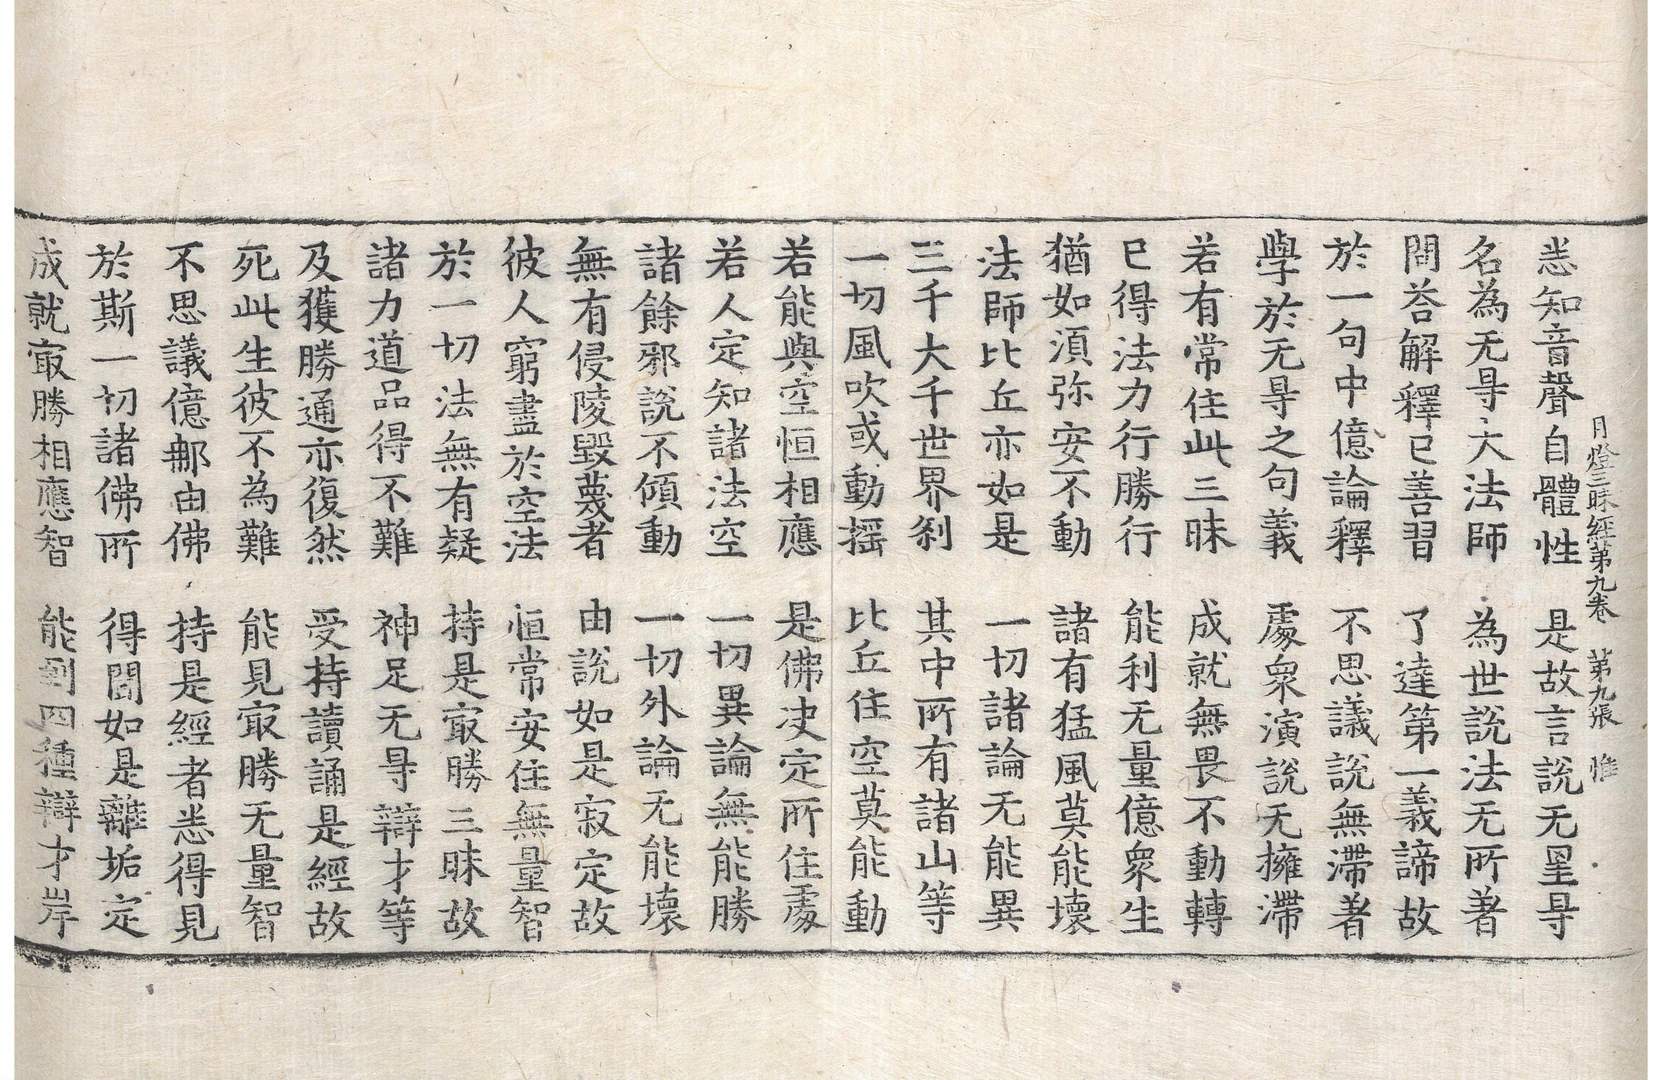 月燈三昧經第九卷　第九張　惟
悉知音聲自體性　是故言說无罣㝵
名為无㝵大法師　為世說法无所著
問荅解釋已善習　了達第一義諦故
於一句中億論釋　不思議說無滯著
學於无㝵之句義　處衆演說无擁滯
若有常住此三昧　成就無畏不動轉
已得法力行勝行　能利无量億衆生
猶如須弥安不動　諸有猛風莫能壞
法師比丘亦如是　一切諸論无能異
三千大千世界刹　其中所有諸山等
一切風吹或動揺　比丘住空莫能動
若能與空恒相應　是佛决定所住處
若人定知諸法空　一切異論無能勝
諸餘邪說不傾動　一切外論无能壞
無有侵陵毀蔑者　由說如是寂定故
彼人窮盡於空法　恒常安住無量智
於一切法無有疑　持是㝡勝三昧故
諸力道品得不難　神足无㝵辯才等
及獲勝通亦復然　受持讀誦是經故
死此生彼不為難　能見㝡勝无量智
不思議億那由佛　持是經者悉得見
於斯一切諸佛所　得聞如是離垢定
成就㝡勝相應智　能到四種辯才岸